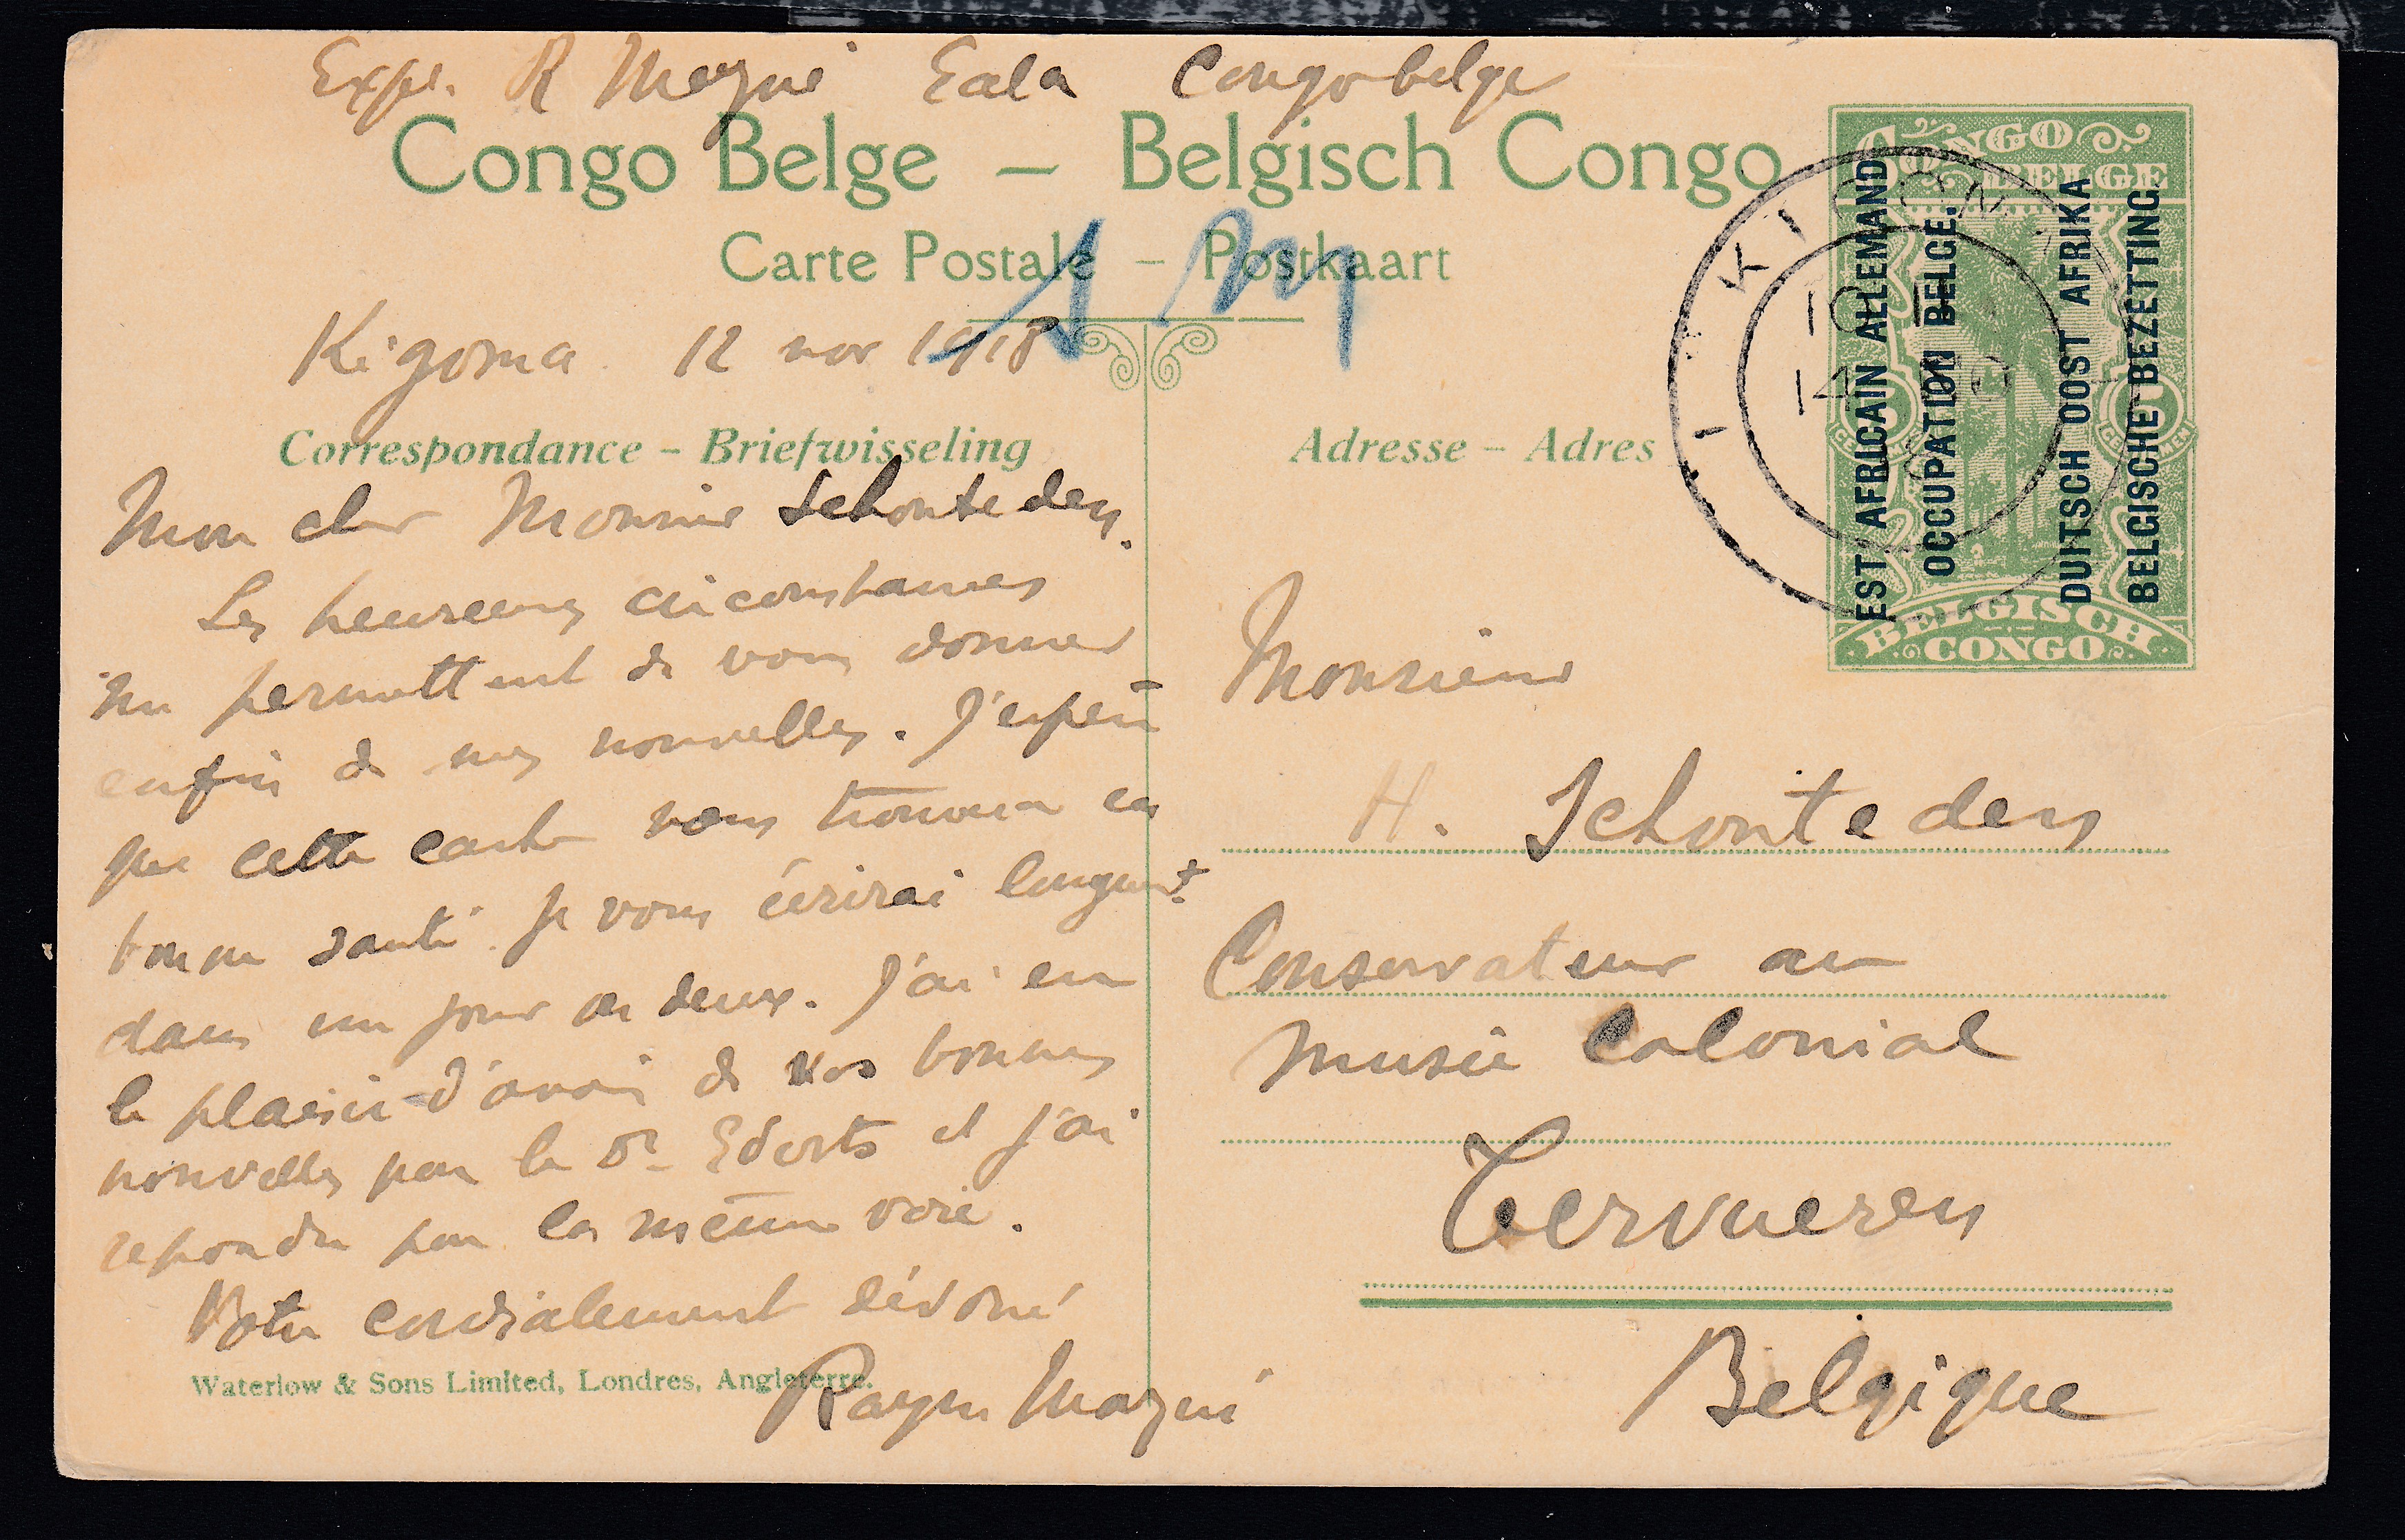 Expr. R Mayné Eala Congo belge
Congo Belge – Belgisch Congo
Carte Postale – Postkaart
1 M
Kigoma 12 nov 1918
Correspondance – Briefwisseling
Mon cher Monsieur Schouteden.
Les heureuses circonstances
me permettent de vous donner
enfin de mes nouvelles. J'espère
que cette carte vous trouvera en
bonne santé. Je vous écrirai longuemt
dans un jour ou deux. J'ai eu
le plaisir d'avoir de vos bonnes
nouvelles par le Dr et j'ai
repondu par la même voie.
Votre cordialement dévoué
Raym Mayné
Waterlow & Sons Limited, Londres, Angleterre.
Adresse – Adres
CONGO
BELGE
EST AFRICAIN ALLEMAND
OCCUPATION BELGE.
DUITSCH OOST AFRIKA
BELGISCHE BEZETTING.
5
5
BELGISCH
CONGO
Monsieur
H. Schouteden
Conservateur au
Musée Colonial
Tervueren
Belgique